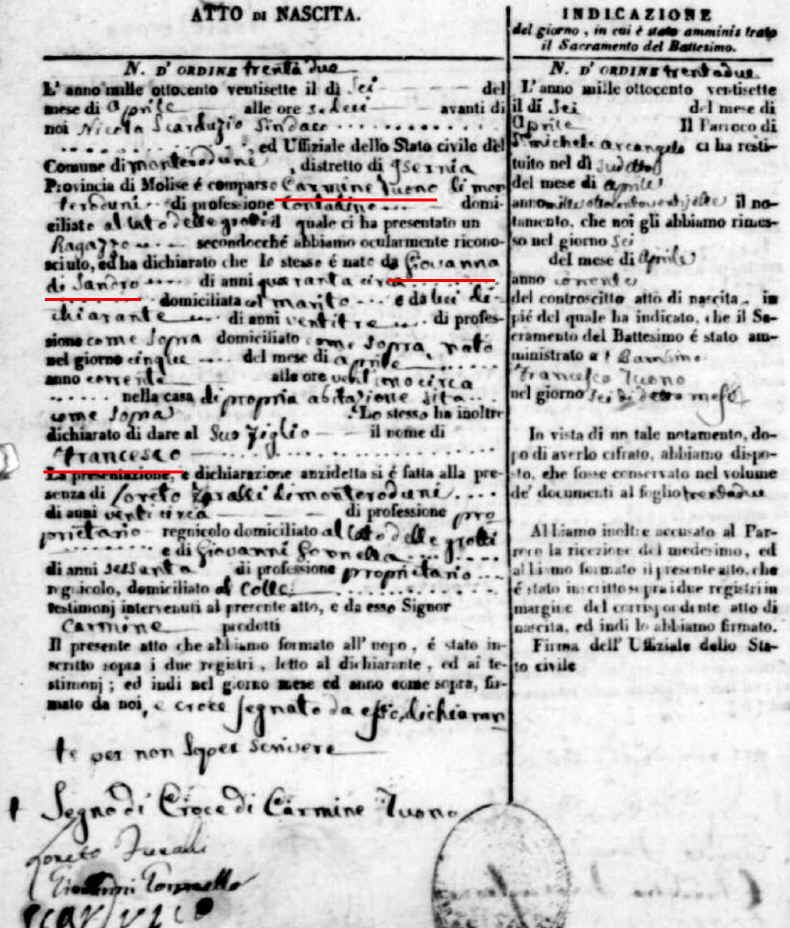 ATTO DI NASCITA.
N. D' ORDINE trenta due
L' anno mille ottocento ventisette il dì Sei del
mese di Aprile alle ore sedeci avanti di
noi Nicola Scarduzio Sindaco
, ed Uffiziale dello Stato civile del
Comune di monteroduni , distretto di Isernia
Provincia di Molise é comparso Carmine Iuono di mon
teroduni di professione Contadino domi-
ciliato al lato delle grotti il quale ci ha presentato un
Ragazzo secondocché abbiamo ocularmente ricono-
sciuto, ed ha dichiarato che lo stesso é nato da Giovanna
di Sandro di anni quaranta circa
domiciliata col marito e da lui di-
chiarante di anni ventitre di profes-
sione come sopra domiciliato come sopra, nato
nel giorno cinque del mese di aprile
anno corrente alle ore circa
nella casa di propria abitazione sita
come sopra Lo stesso ha inoltre
dichiarato di dare al Suo figlio il nome di
Francesco
La presentazione, e dichiarazione anzidetta si é fatta alla pre-
senza di Loreto di monteroduni
di anni venti circa di professione pro
prietario regnicolo domiciliato al lato delle grotti
e di Giovanni
di anni sessanta di professione proprietario
regnicolo, domiciliato al Colle
testimonj intervenuti al presente atto, e da esso Signor
Carmine prodotti
Il presente atto che abbiamo formato all' uopo, é stato in-
scritto sopra i due registri, letto al dichiarante, ed ai te-
stimonj; ed indi nel giorno mese ed anno come sopra, fir-
mato da noi, e croce segnato da esso dichiaran
te per non saper scrivere
† Segno di Croce di Carmine Iuono
Loreto
Giovanni
Scarduzio
INDICAZIONE
del giorno, in cui é stato amministrato
il Sacramento del Battesimo.
N. D' ORDINE trentadue
L' anno mille ottocento ventisette
il dì Sei del mese di
Aprile Il Parroco di
S. michele arcangelo ci ha resti-
tuito nel dì sudetto
del mese di aprile
anno milleottocentoventisette il no-
tamento, che noi gli abbiamo rimes-
so nel giorno Sei
del mese di Aprile
anno corrente
del controscitto atto di nascita, in
pié del quale ha indicato, che il Sa-
cramento del Battesimo é stato am-
ministrato al Bambino
Francesco Iuono
nel giorno Sei di detto mese
In vista di un tale notamento, do-
po di averlo cifrato, abbiamo dispo-
sto, che fosse conservato nel volume
de' documenti al foglio trentadue
Abbiamo inoltre accusato al Par-
roco la ricezione del medesimo, ed
abbiamo formato il presente atto, che
é stato inscritto sopra i due registri in
margine del corrispondente atto di
nascita, ed indi lo abbiamo firmato.
Firma dell' Uffiziale dello Sta-
to civile